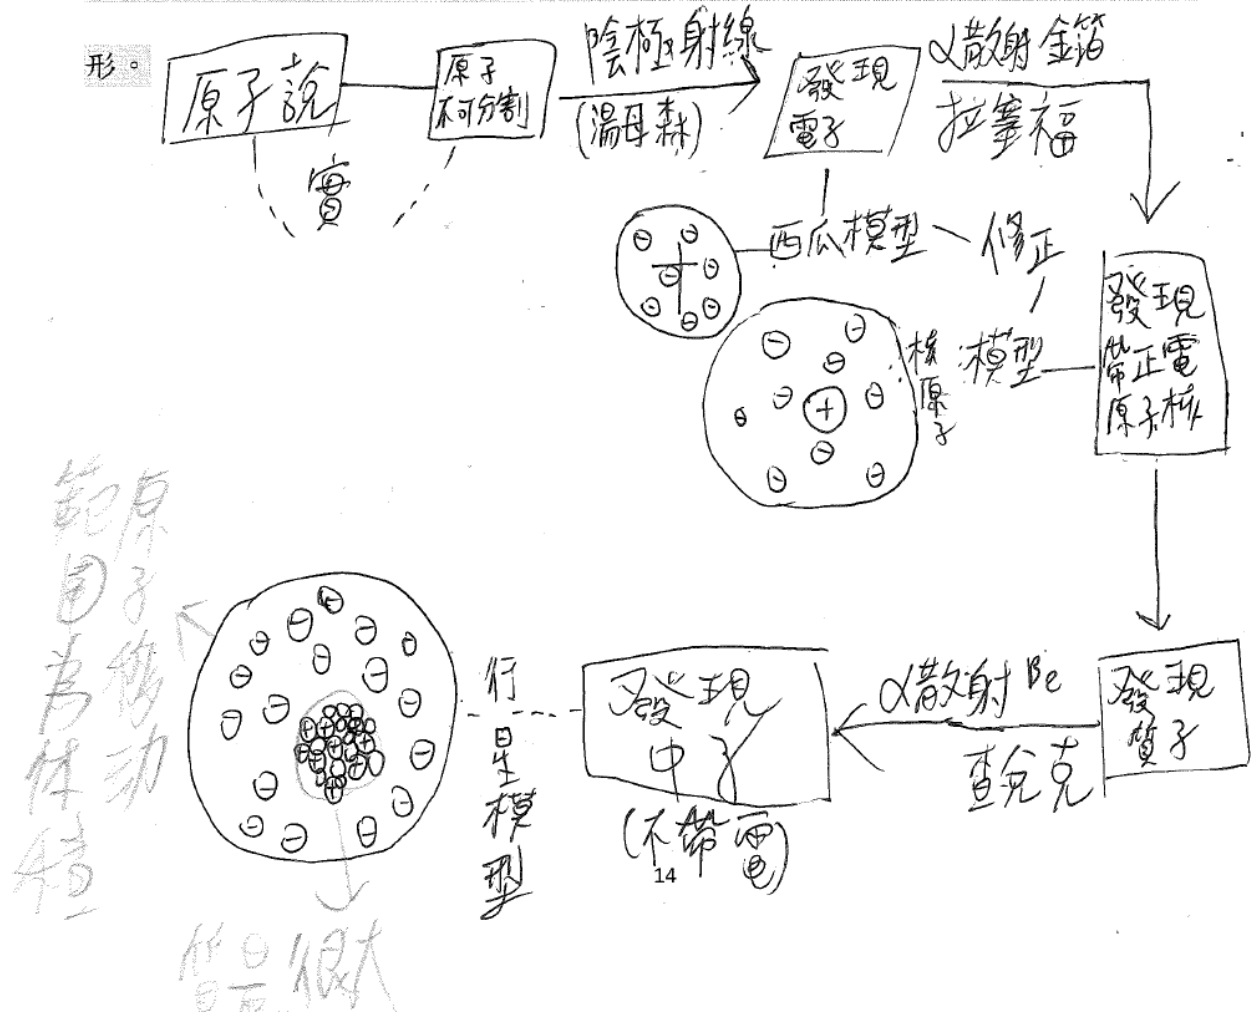 形。
原子說
原子
不可分割
實
陰極射線
(湯母森)
發現
電子
α散射金箔
拉塞福
西瓜模型
修正
模型
核原子
發現
帶正電
原子核
發現
質子
α散射Be
查兌克
發現
中子
(不帶電)
14
行星模型
原子移动
範圍為体積
質量很大